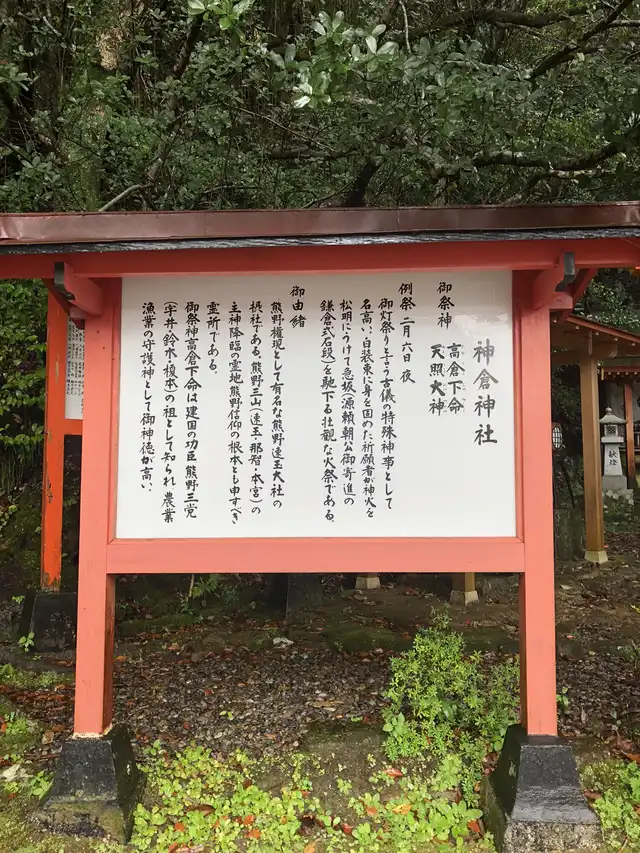 神倉神社
御祭神
高倉下命
天照大神
例祭 二月六日 夜
御灯祭りと言う古儀の特殊神事として
名高い：白装束に身を固めた祈願者が神火を
松明にうけて急坂(源頼朝公御寄進の
鎌倉式石段)を駈下る壮観な火祭である。
御由緒
熊野権現として有名な熊野速玉大社の
摂社である。熊野三山(速玉・那智・本宮)の
主神降臨の霊地熊野信仰の根本とも申すべき
霊所である。
御祭神高倉下命は建国の功臣熊野三党
(宇井鈴木榎本)の祖として知られ農業
漁業の守護神として御神徳が高い、
献燈